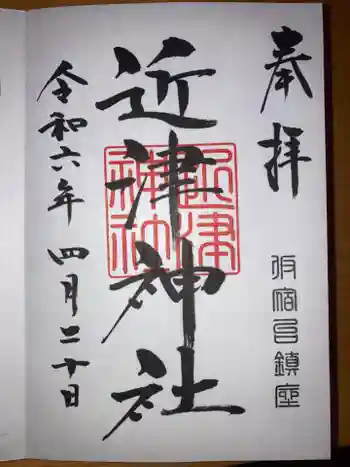 奉拝
坂宿邑鎮座
近津神社
近津
神社
令和六年 四月二十日